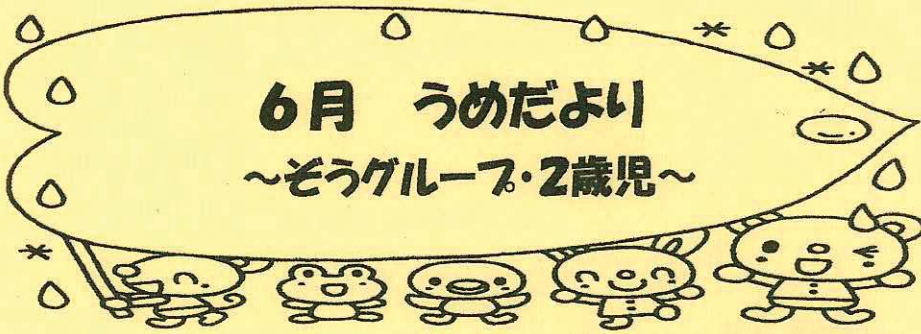 6月　うめだより
～ぞうグループ・2歳児～